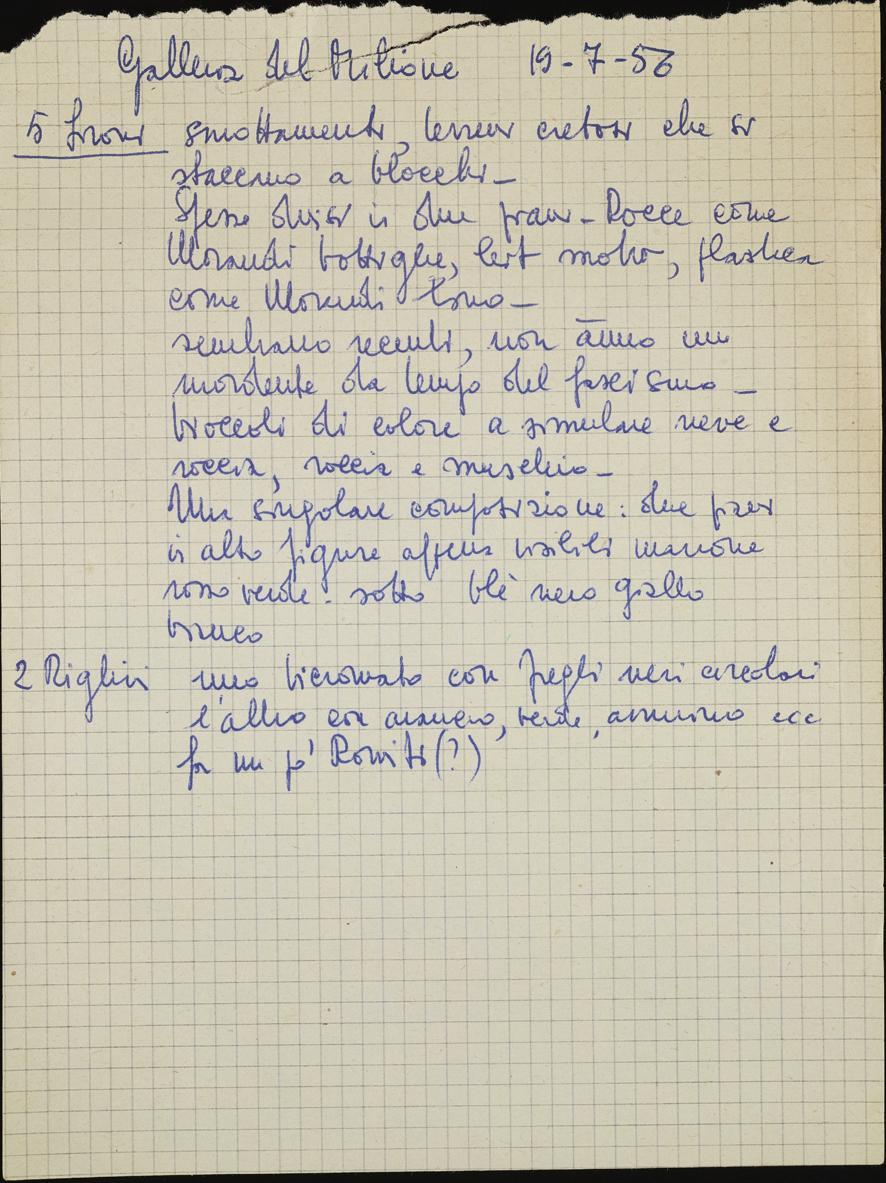 Galleria del Milione 19-7-56
5 Sironi smottamenti, terreni cretosi che si
staccano a blocchi_
Spesso divisi in due piani_ Rocce come
Morandi bottiglie, leit motiv, plastica
come Morandi
sembrano recenti, non ànno un
mordente da tempo del fascismo_
broccoli di colore a simulare neve e
roccia, roccia e muschio_
Una singolare composizione: due piani
in alto figure appena visibili marrone
rosso verde: sotto blè nero giallo
bianco
2 Righini uno bicromato con fregli neri circolari
l'altro con arancio, verde, ecc
fa un po' Romiti(?)